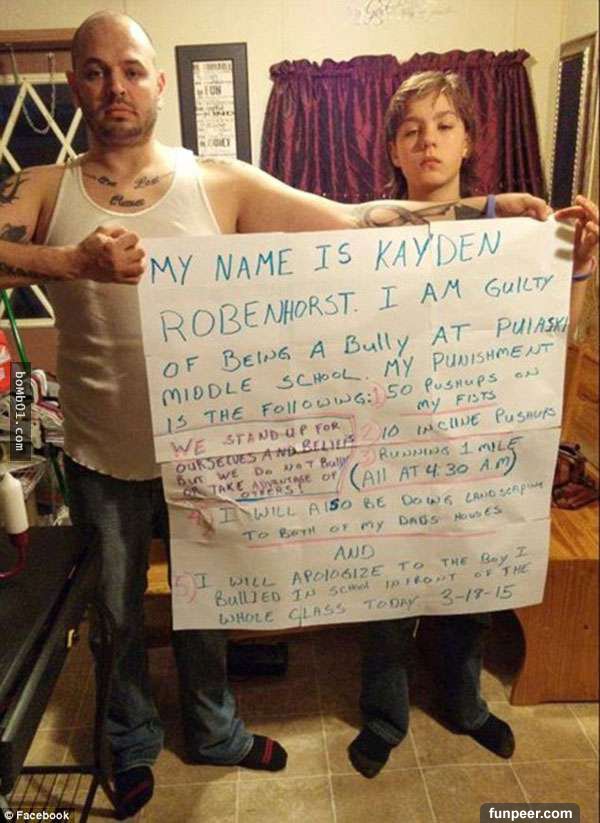 MY NAME IS KAYDEN
ROBENHORST. I AM GUILTY
OF BEING A Bully AT PULASKI
MIDDLE SCHOOL. MY PUNISHMENT
IS THE FOllOWING: 1) 50 PUSHUPS ON
MY FISTS
2) 10 INCLINE PUSHUPS
3) RUNNING 1 MILE
(All AT 4:30 A.M)
WE STAND UP FOR
OURSELVES AND BELIEFS
BUT WE DO NOT Bully
OR TAKE ADVANTAGE OF
OTHERS!
4) I WILL AlSO BE DOING LANDSCAPING
TO BOTH OF MY DADS HOUSES
AND
5) I WILL APOLOGIZE TO THE BOY I
BULLIED IN SCHOOL INFRONT OF THE
WHOLE CLASS TODAY 3-18-15
boMb01.com
© Facebook
funpeer.com